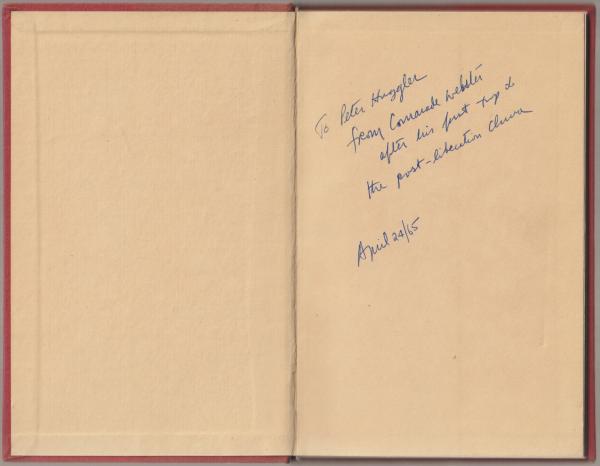 To Peter Huggler
from Comarade Webster
after his first trip to
the post-liberation China
April 24/65